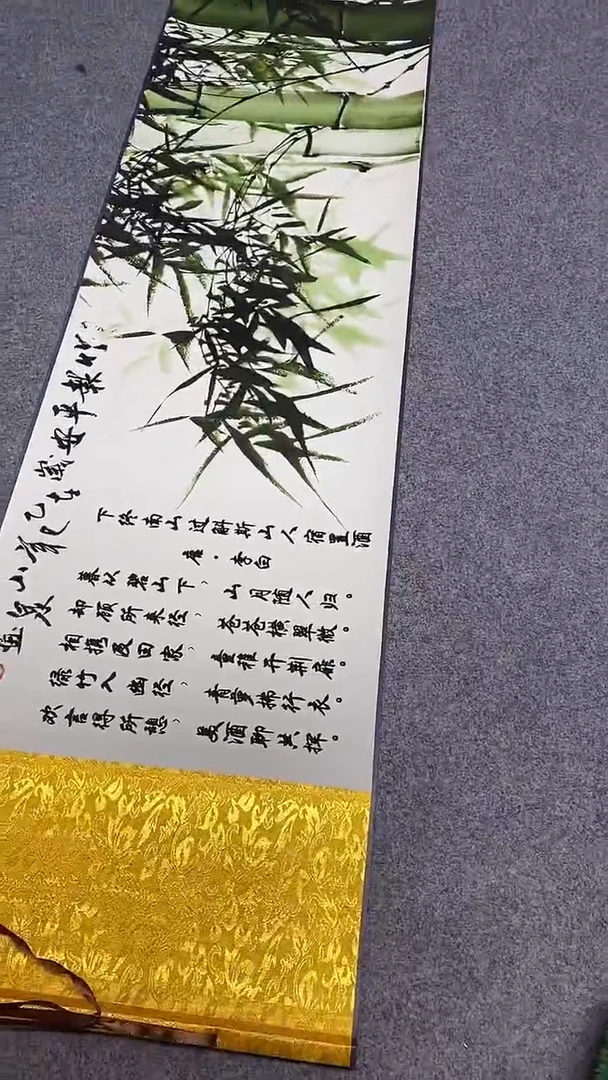 下终南山过斛斯山人宿置酒
唐·李白
暮从碧山下，山月随人归。
却顾所来径，苍苍横翠微。
相携及田家，童稚开荆扉。
绿竹入幽径，青萝拂行衣。
欢言得所憩，美酒聊共挥。
竹報平安歲在乙巳
山泉画